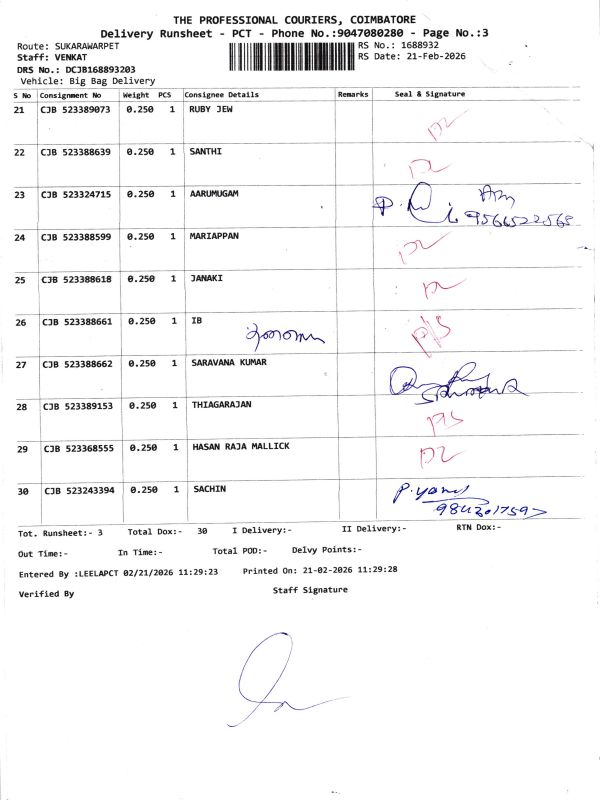 THE PROFESSIONAL COURIERS, COIMBATORE
Delivery Runsheet - PCT - Phone No.:9047080280 - Page No.:3
Route: SUKARAWARPET
RS No.: 1688932
Staff: VENKAT
RS Date: 21-Feb-2026
DRS No.: DCJB168893203
Vehicle: Big Bag Delivery
S No Consignment No Weight PCS Consignee Details Remarks Seal & Signature
21 CJB 523389073 0.250 1 RUBY JEW
22 CJB 523388639 0.250 1 SANTHI
23 CJB 523324715 0.250 1 AARUMUGAM
9566522568
24 CJB 523388599 0.250 1 MARIAPPAN
25 CJB 523388618 0.250 1 JANAKI
26 CJB 523388661 0.250 1 IB
27 CJB 523388662 0.250 1 SARAVANA KUMAR
28 CJB 523389153 0.250 1 THIAGARAJAN
29 CJB 523368555 0.250 1 HASAN RAJA MALLICK
30 CJB 523243394 0.250 1 SACHIN
Tot. Runsheet:- 3 Total Dox:- 30 I Delivery:- II Delivery:- RTN Dox:-
Out Time:- In Time:- Total POD:- Delvy Points:-
Entered By :LEELAPCT 02/21/2026 11:29:23 Printed On: 21-02-2026 11:29:28
Verified By Staff Signature